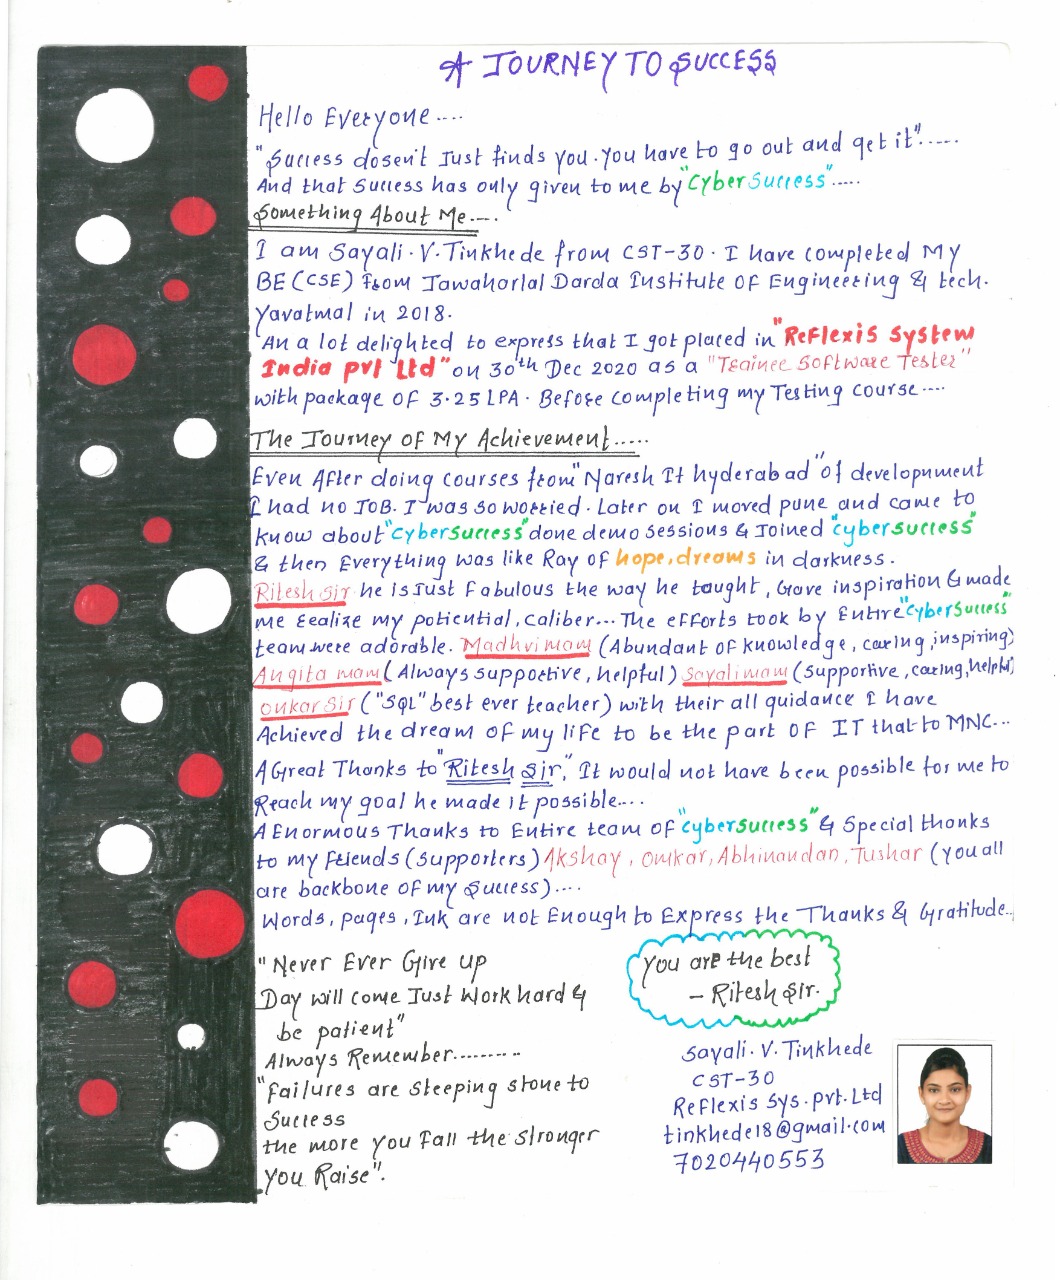 A JOURNEY TO SUCCESS
Hello Everyone....
"Success dosen't Just finds you. You have to go out and get it".....
And that success has only given to me by "CyberSuccess".....
Something About Me....
I am Sayali. V. Tinkhede from CST-30. I have completed My
BE (CSE) from Jawaharlal Darda Institute OF Engineering & tech.
Yavatmal in 2018.
An a lot delighted to express that I got placed in "ReFlexis System
India pvt Ltd" on 30th Dec 2020 as a "Trainee Software Tester"
with package OF 3.25 LPA. Before completing my Testing course....
The Journey of My Achievement.....
Even After doing courses from "Naresh It hyderabad" of development
I had no JOB. I was so worried. Later on I moved pune and came to
know about "CyberSuccess" done demo sessions & Joined "cyberSuccess"
& then Everything was like Ray of hope, dreams in darkness.
Ritesh Sir he is Just Fabulous the way he taught, Gave inspiration & made
me realize my potiential, caliber... The efforts took by Entire "CyberSuccess"
team were adorable. Madhvi mam (Abundant of knowledge, caring, inspiring)
Angita mam (Always supportive, helpful) Sayali mam (Supportive, caring, helpful)
Omkar Sir ("SQL" best ever teacher) with their all guidance I have
Achieved the dream of my life to be the part OF IT that to MNC...
A Great Thanks to "Ritesh Sir," It would not have been possible for me to
Reach my goal he made it possible....
A Enormous Thanks to Entire team of "cyberSuccess" & Special thanks
to my friends (supporters) Akshay, Omkar, Abhinandan, Tushar (you all
are backbone of my Success)....
Words, pages, Ink are not Enough to Express the Thanks & Gratitude..
"Never Ever Give up
Day will come Just Work hard &
be patient"
Always Remember.........
"Failures are steeping stone to
Success
the more you fall the stronger
You Raise".
You are the best
- Ritesh Sir.
Sayali. V. Tinkhede
CST-30
ReFlexis Sys. pvt. Ltd
tinkhede18@gmail.com
7020440553